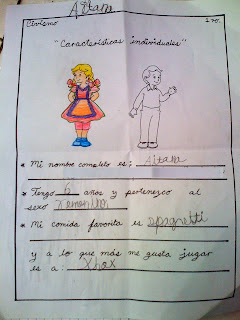 Aitana
Civismo 1ro.
"Características individuales"
* Mi nombre completo es: Aitana
* Tengo 6 años y pertenezco al
sexo
* Mi comida favorita es spagretti
y a lo que más me gusta jugar
es a: Xbox